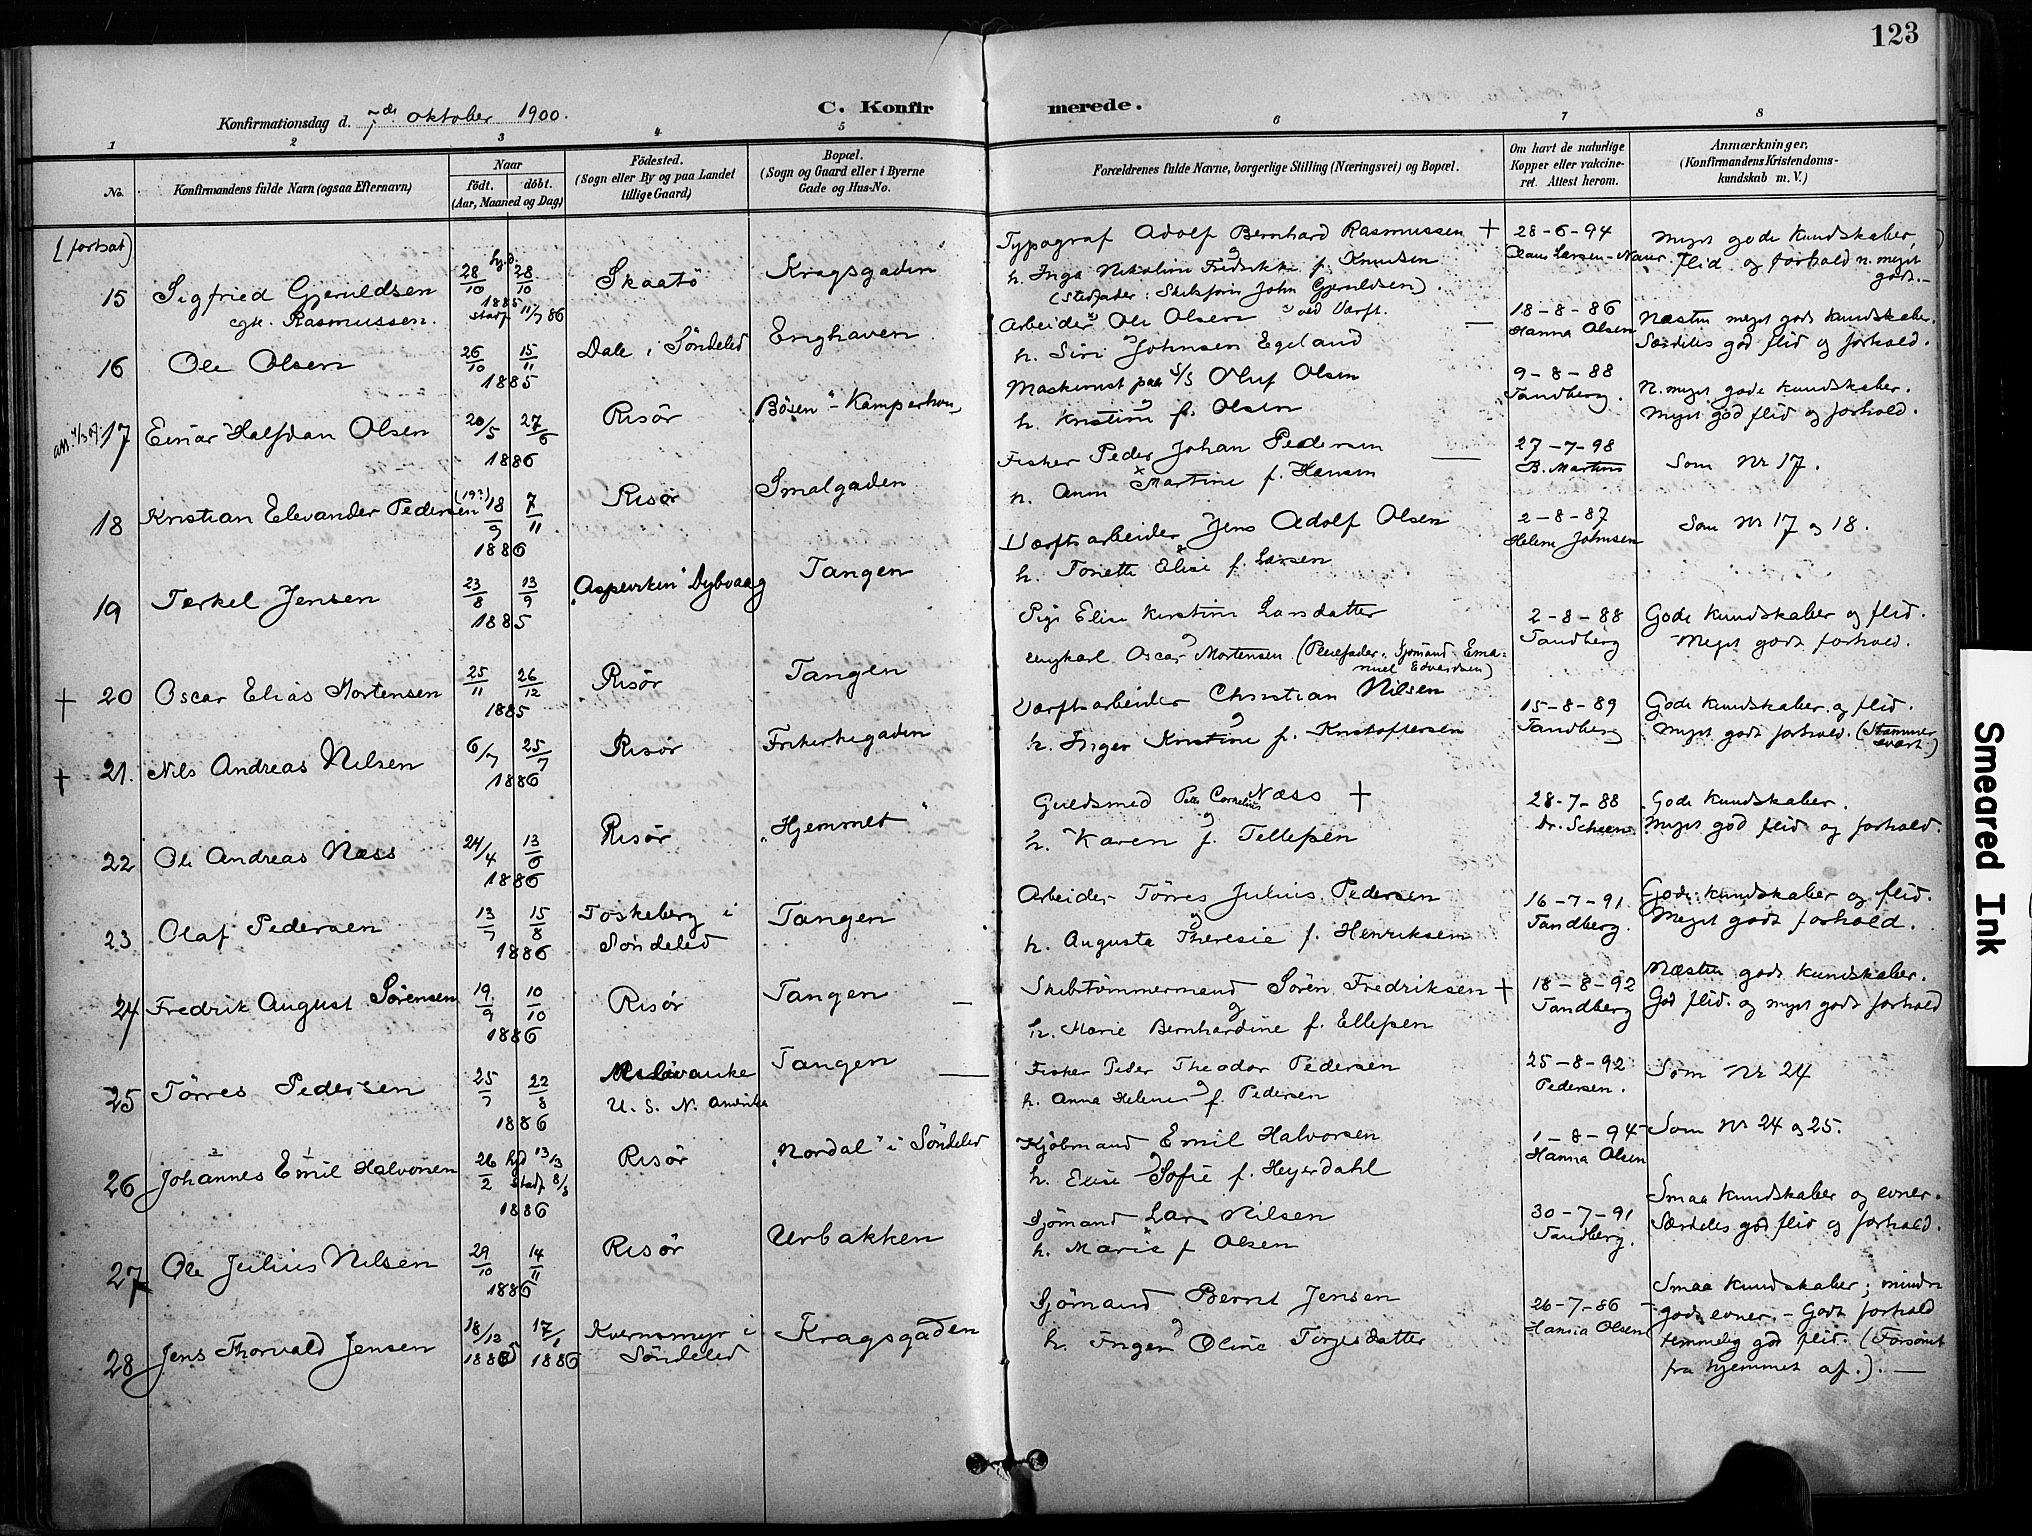 123
C. Konfirmerede.
Konfirmationsdag d. 7de oktober 1900.
1 2 3 4 5 6 7 8
No.
Konfirmandens fulde Navn (ogsaa Efternavn)
Naar
födt. döbt.
(Aar, Maaned og Dag)
Födested.
(Sogn eller By og paa Landet
tillige Gaard)
Bopæl.
(Sogn og Gaard eller i Byerne
Gade og Hus-No.
Forældrenes fulde Navne, borgerlige Stilling (Næringsvei) og Bopæl.
Om havt de naturlige
Kopper eller vakcine-
ret. Attest herom.
Anmærkninger,
(Konfirmandens Kristendoms-
kundskab m. V.)
(fortsat)
15 Sigfried Gjeruldsen 28/10 hjd. 28/10 Skaatö Kragsgaden Typograf Adolf Bernhard Rasmussen + 28-6-94 Meget gode kundskaber,
Rasmussen. 1885 stadf 11/7 86 h. Inga Nikoline Fredrikke f. Knudsen Claus Larsen flid og forhold n. meget
(Stedfader: John Gjeruldsen). godt.
16 Ole Olsen 26/10 15/11 Dale i Söndeled Enghaven Arbeider Ole Olsen ved Værft. 18-8-86 Næsten meget gode kundskaber.
1885 h. Siri Johnsen Egeland Hanna Olsen Særdeles god flid og forhold.
17 Einar Halfdan Olsen 20/5 27/6 Risör Maskinist paa S/S Oluf Olsen 9-8-88 N. meget gode kundskaber.
1886 h. Kristine f. Olsen Tandberg. Meget god flid og forhold.
18 Kristian Elevander Pedersen (19?) 18/9 7/11 Risör Smalgaden Fisker Peder Johan Pedersen 27-7-98 Som Nr 17.
1886 h. Anne Martine f. Hansen B. Martins
19 Terkel Jensen 23/8 13/9 "Aspevken" Dybvaag Tangen Værftsarbeider Jens Adolf Olsen 2-8-87 Som Nr 17 og 18.
1885 h. Tonette Elise f. Larsen Helene Johnsen
+ 20 Oscar Elias Mortensen 25/11 26/12 Risör Tangen Pige Elise Kirstine Larsdatter 2-8-88 Gode kundskaber og flid.
1885 ungkarl Oscar Mortensen (Pleiefader: Sjömand Ema- Tandberg Meget godt forhold.
nuel Edvardsen)
+ 21. Nils Andreas Nilsen 6/7 25/7 Risör Frikirkegaden Værftsarbeider Christian Nilsen 15-8-89 Gode kundskaber og flid.
1886 h. Inger Kristine f. Kristoffersen Tandberg Meget godt forhold. (Stammer
svært)
22 Ole Andreas Næss 24/4 13/6 Risör "Hjemmet" Guldsmed Peter Cornelius Næss + 28-7-88 Gode kundskaber.
1886 h. Karen f. Tellefsen Dr. Scheen Meget god flid og forhold.
23 Olaf Pedersen 13/7 15/8 Toskeberg i Söndeled Tangen Arbeider Törres Julius Pedersen 16-7-91 Gode kundskaber og flid.
1886 h. Auguste Theresie f. Henriksen Tandberg. Meget godt forhold.
24 Fredrik August Sörensen 19/9 10/10 Risör Tangen Skibstömmermand Sören Fredriksen + 18-8-92 Næsten gode kundskaber.
1886 h. Marie Bernhardine f. Ellefsen Tandberg God flid og meget godt forhold
25 Törres Pedersen 25/7 22/8 U. S. N. Amerika Tangen Fisker Peder Theodor Pedersen 25-8-92 Som Nr 24
1886 h. Anna Helene f. Pedersen Pedersen.
26 Johannes Emil Halvorsen 26/2 hjd 13/3 stadf 8/8 Risör "Nordal" i Söndeled Kjöbmand Emil Halvorsen 1-8-94 Som Nr 24 og 25.
1886 h. Elise Sofie f. Heyerdahl Hanna Olsen
27 Ole Julius Nilsen 29/10 14/11 Risör Urbakken Sjömand Lars Nilsen 30-7-91 Smaa kundskaber og evner.
1886 h. Marie f Olsen Tandberg. Særdeles god flid og forhold.
28 Jens Thorvald Jensen 18/12 17/1 Kvernsmyr i Söndeled Kragsgaden Sjömand Bernt Jensen 26-7-86 Smaa kundskaber; mindre
1885 1886 h. Ingen Oline Torjesdatter Hanna Olsen gode evner. - Godt forhold
temmelig god flid. (Forsömt
fra hjemmet af.). —
Smeared Ink